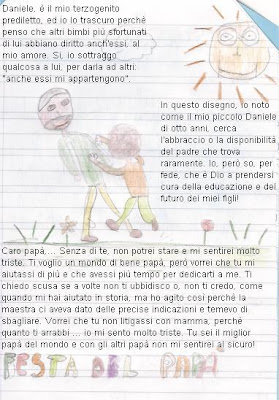 Daniele, é il mio terzogenito
prediletto, ed io lo trascuro perché
penso che altri bimbi più sfortunati
di lui abbiano diritto anch'essi, al
mio amore. Si, io sottraggo
qualcosa a lui, per darla ad altri:
"anche essi mi appartengono".
In questo disegno, Io noto
come il mio piccolo Daniele
di otto anni, cerca
l'abbraccio o la disponibilità
del padre che trova
raramente. Io, però so, per
fede, che é Dio a prendersi
cura della educazione e del
futuro dei miei figli!
Caro papá,... Senza di te, non potrei stare e mi sentirei molto
triste. Ti voglio un mondo di bene papá, peró vorrei che tu mi
aiutassi di piú e che avessi piú tempo per dedicarti a me. Ti
chiedo scusa se a volte non ti ubbidisco o, non ti credo, come
quando mi hai aiutato in storia, ma ho agito cosí perché la
maestra ci aveva dato delle precise indicazioni e temevo di
sbagliare. Vorrei che tu non litigassi con mamma, perché
quanto ti arrabbi ... io mi sento molto triste. Tu sei il miglior
papá del mondo e con gli altri papá non mi sentirei al sicuro!
FESTA DEL PAPÀ